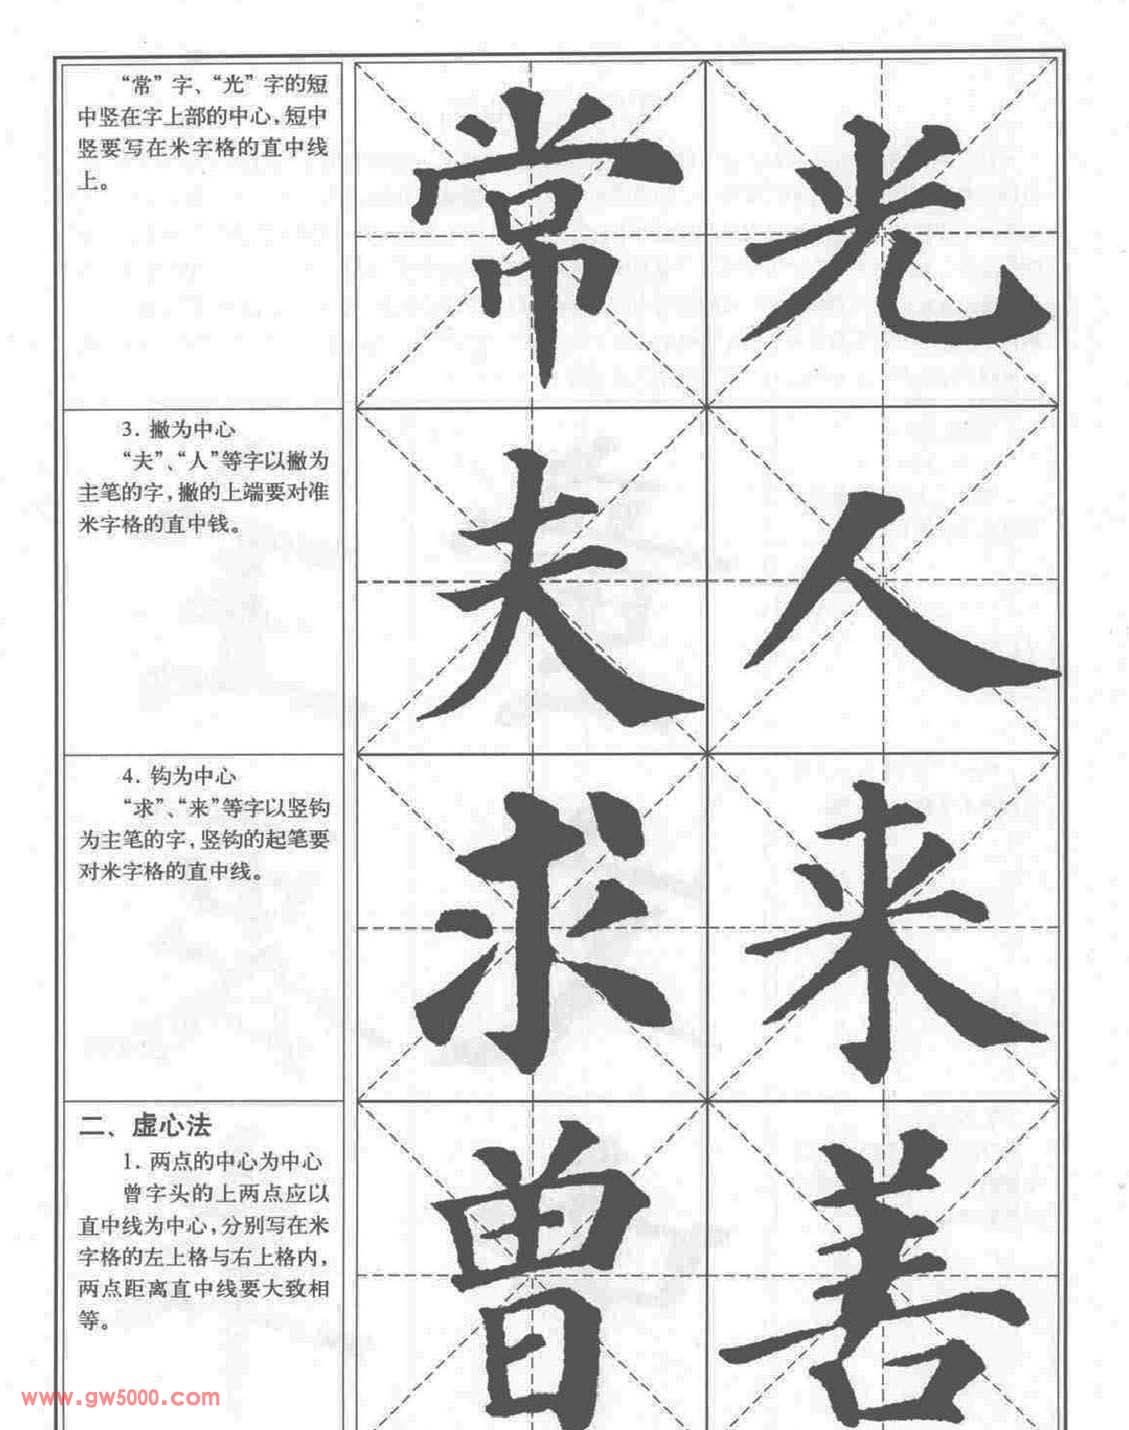 “常”字、“光”字的短
中竖在字上部的中心,短中
竖要写在米字格的直中线
上。
常 光
3. 撇为中心
“夫”、“人”等字以撇为
主笔的字,撇的上端要对准
米字格的直中钱。
夫 人
4. 钩为中心
“求”、“来”等字以竖钩
为主笔的字,竖钩的起笔要
对米字格的直中线。
求 来
二、虚心法
1. 两点的中心为中心
曾字头的上两点应以
直中线为中心,分别写在米
字格的左上格与右上格内,
两点距离直中线要大致相
等。
曾 善
www.gw5000.com